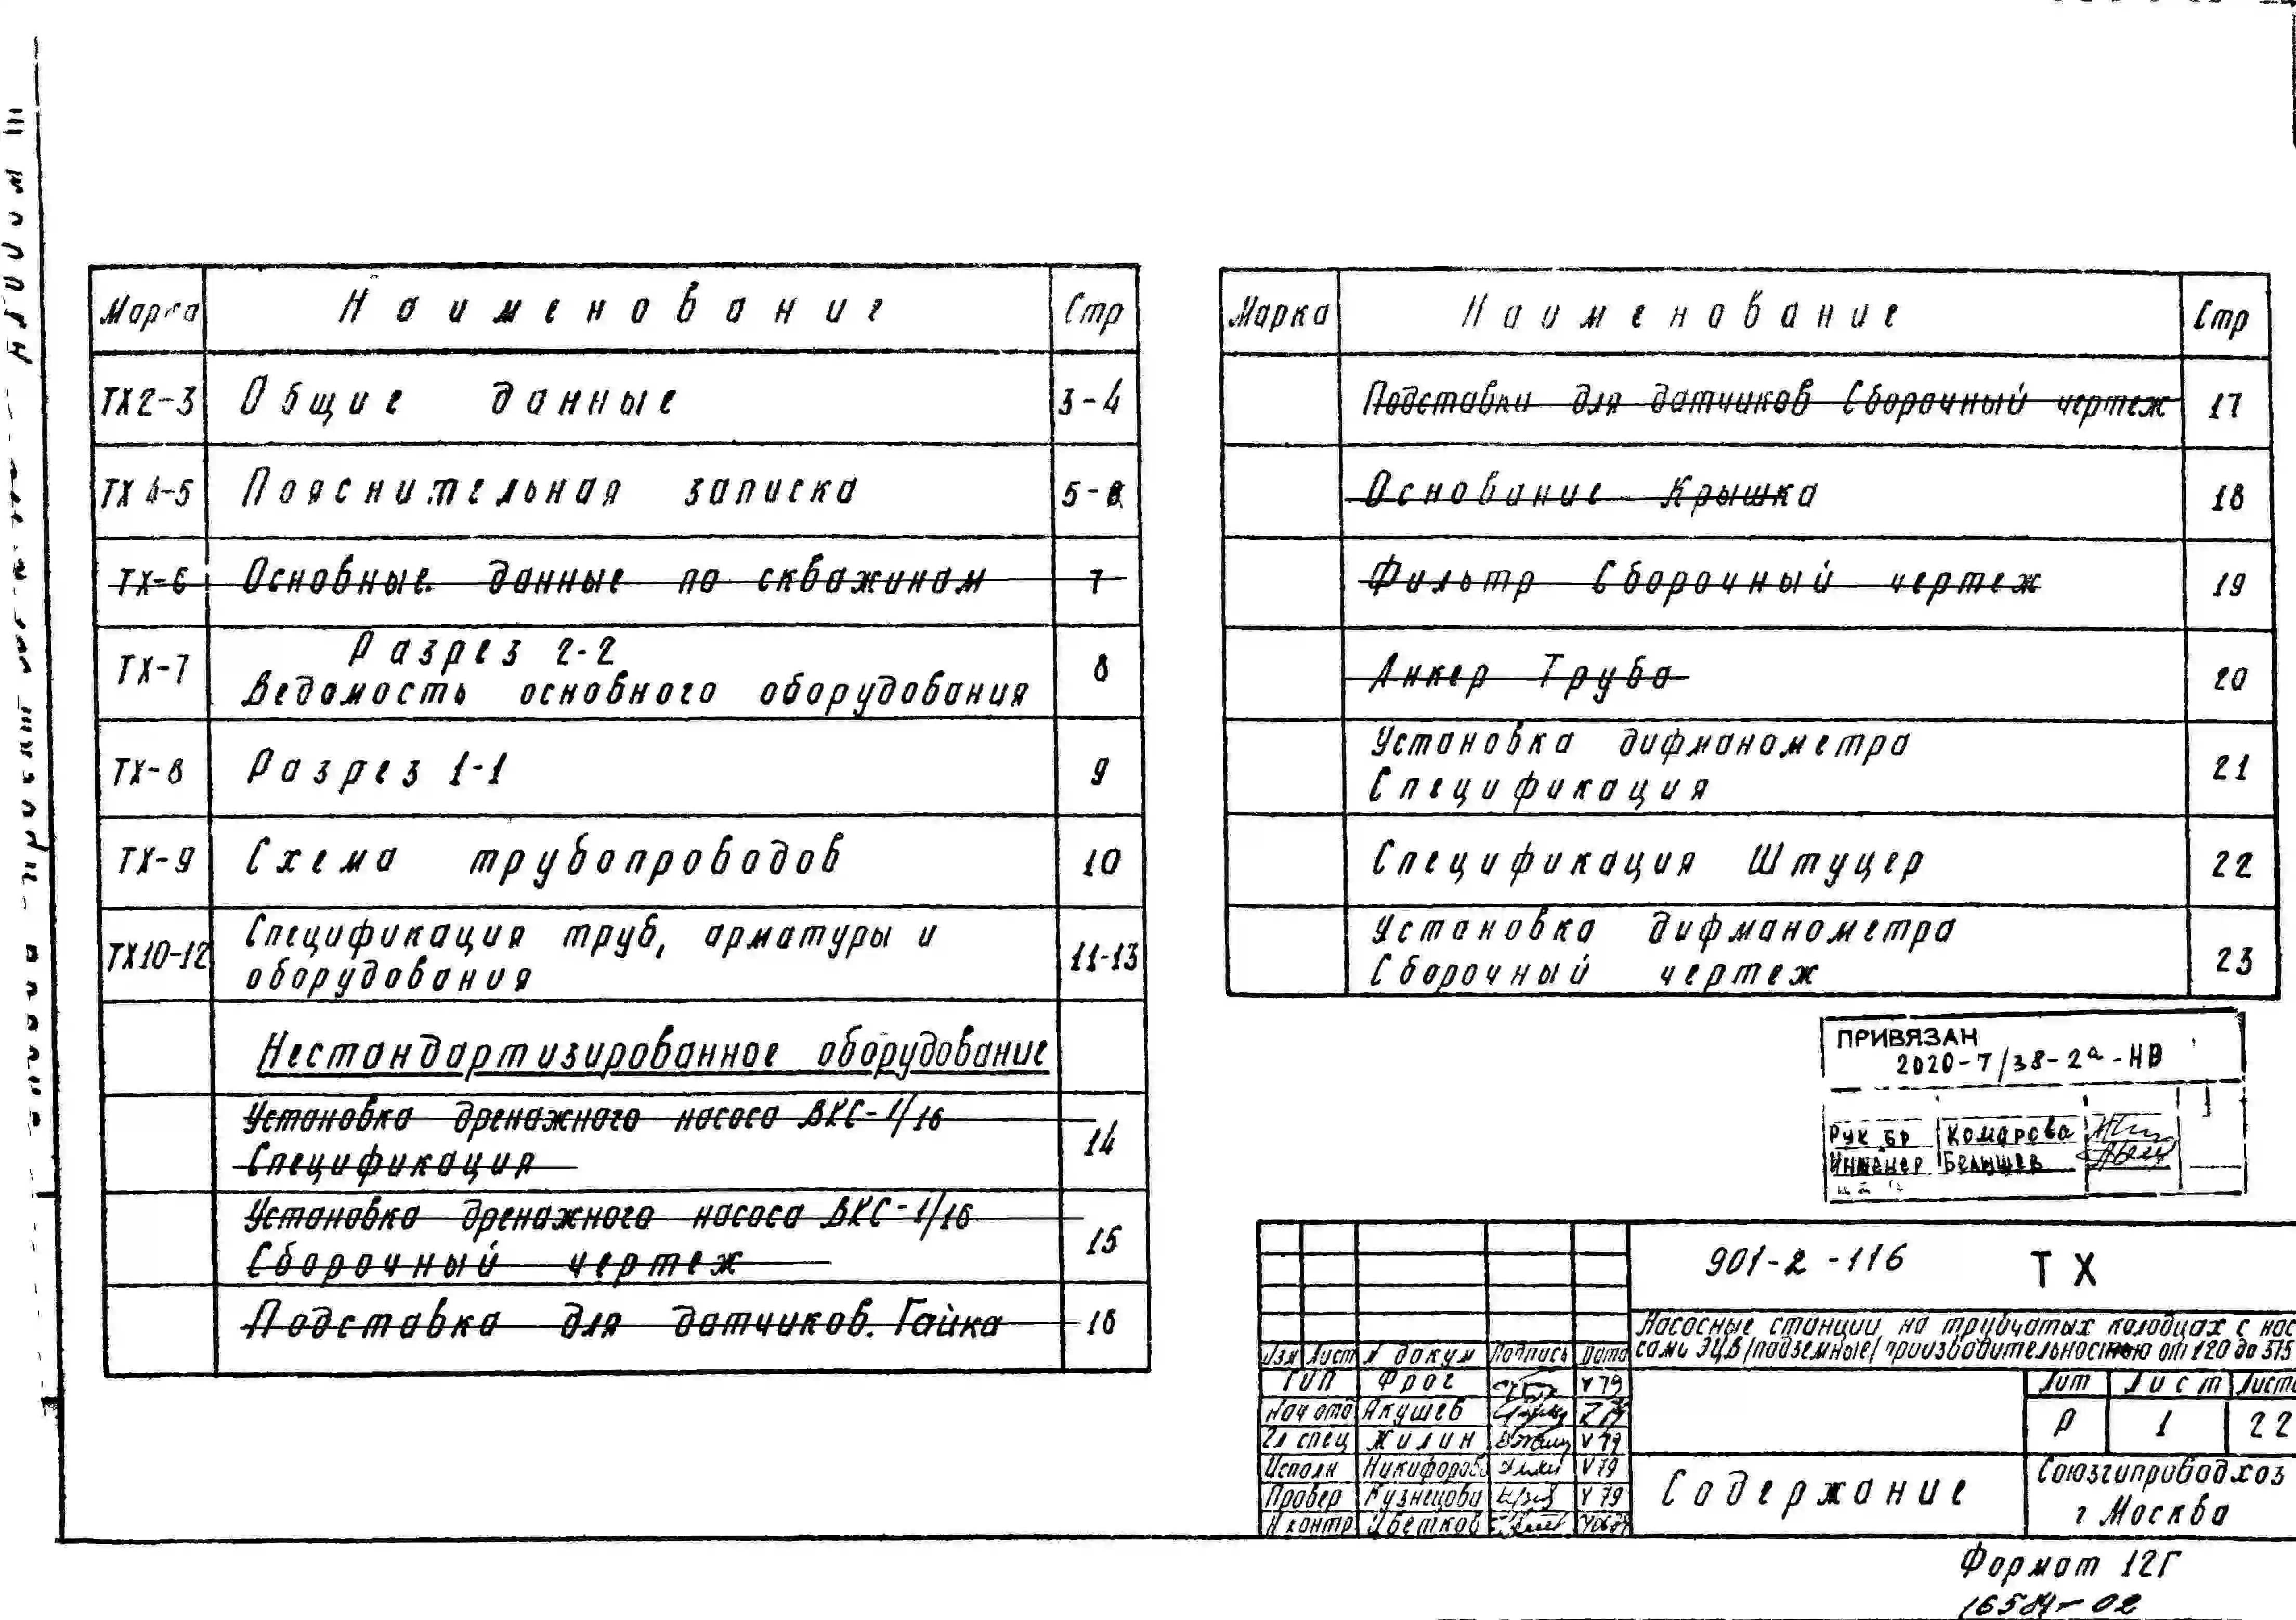 Марка Наименование Стр
ТХ2-3 Общие данные 3-4
ТХ 4-5 Пояснительная записка 5-6
ТХ-6 Основные данные по скважинам 7
ТХ-7 Разрез 2-2
Ведомость основного оборудования 8
ТХ-8 Разрез 1-1 9
ТХ-9 Схема трубопроводов 10
ТХ10-12 Спецификация труб, арматуры и
оборудования 11-13
Нестандартизированное оборудование
Установка дренажного насоса ВКС-1/16
Спецификация 14
Установка дренажного насоса ВКС-1/16
Сборочный чертеж 15
Подставка для датчиков. Гайка 16
Марка Наименование Стр
Подставки для датчиков Сборочный чертеж 17
Основание Крышка 18
Фильтр Сборочный чертеж 19
Анкер Труба 20
Установка дифманометра
Спецификация 21
Спецификация Штуцер 22
Установка дифманометра
Сборочный чертеж 23
ПРИВЯЗАН
2020-7/38-2а-НВ
Рук бр Комарова
Инженер Белышев
901-2-116 ТХ
Насосные станции на трубчатых колодцах с нас
сами ЭЦВ /подземные/ производительностью от 120 до 375
Изм Лист № докум Подпись Дата
ГИП Фрог V 79
Нач отд Акушев
Гл спец Жилин V 79
Исполн Никифорова V 79
Провер Кузнецова V 79
Н контр Цветков
Лит Лист Листо
Р 1 22
Содержание
Союзгипроводхоз
г Москва
Формат 12Г
16584-02